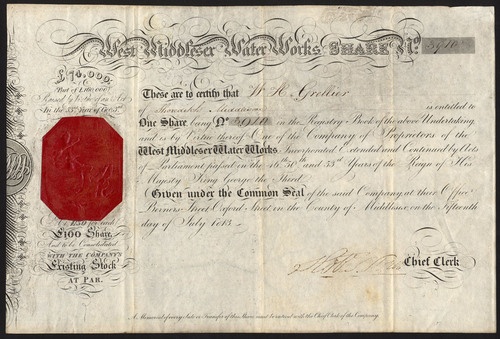 West Middlesex Water Works SHARE No. 5910
£74,000,
Part of £160,000
Raised by Virtue of an Act
In the 53rd Year of Geo. 3rd
£100 Share,
And to be Consolidated
WITH THE COMPANY'S
Existing Stock
AT PAR.
These are to certify that W H Grellier
of is entitled to
One Share being No. 5910 in the Registry Book of the above Undertaking
and is by Virtue thereof One of the Company of Proprietors of the
West Middlesex Water Works Incorporated Extended and Continued by Acts
of Parliament passed in the 46th 50th and 53rd Years of the Reign of His
Majesty King George the Third.
Given under the Common Seal of the said Company at their Office
Berners Street Oxford Street in the County of Middlesex, on the Fifteenth
day of July 1813.
Chief Clerk
A Memorial of every Sale or Transfer of this Share must be entered with the Chief Clerk of the Company.